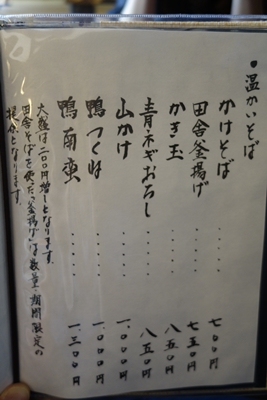 ●温かいそば
かけそば ‥‥‥ 七〇〇円
田舎釜揚げ ‥‥‥ 七五〇円
かき玉 ‥‥‥ 八五〇円
青ネギおろし ‥‥‥ 八五〇円
山かけ ‥‥‥ 一、〇〇〇円
鴨つくね ‥‥‥ 一、〇〇〇円
鴨南蛮 ‥‥‥ 一、三〇〇円
大盛は二〇〇円増しとなります。
田舎そばを使った「釜揚げ」は数量・期間限定の
提供となります。